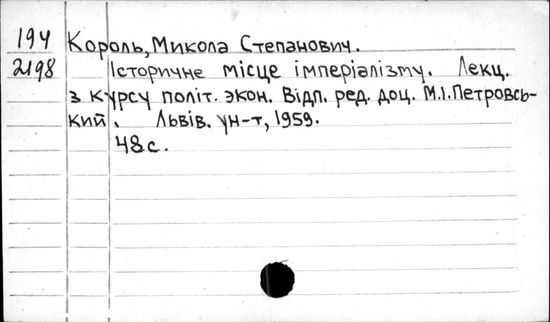 194 Король, Микола Степанович.
2198 Історичне місце імперіалізму. Лекц.
з курсу політ. экон. Відп. ред. доц. М.І.Петровсь-
кий. Львів. ун-т, 1959.
48 с.